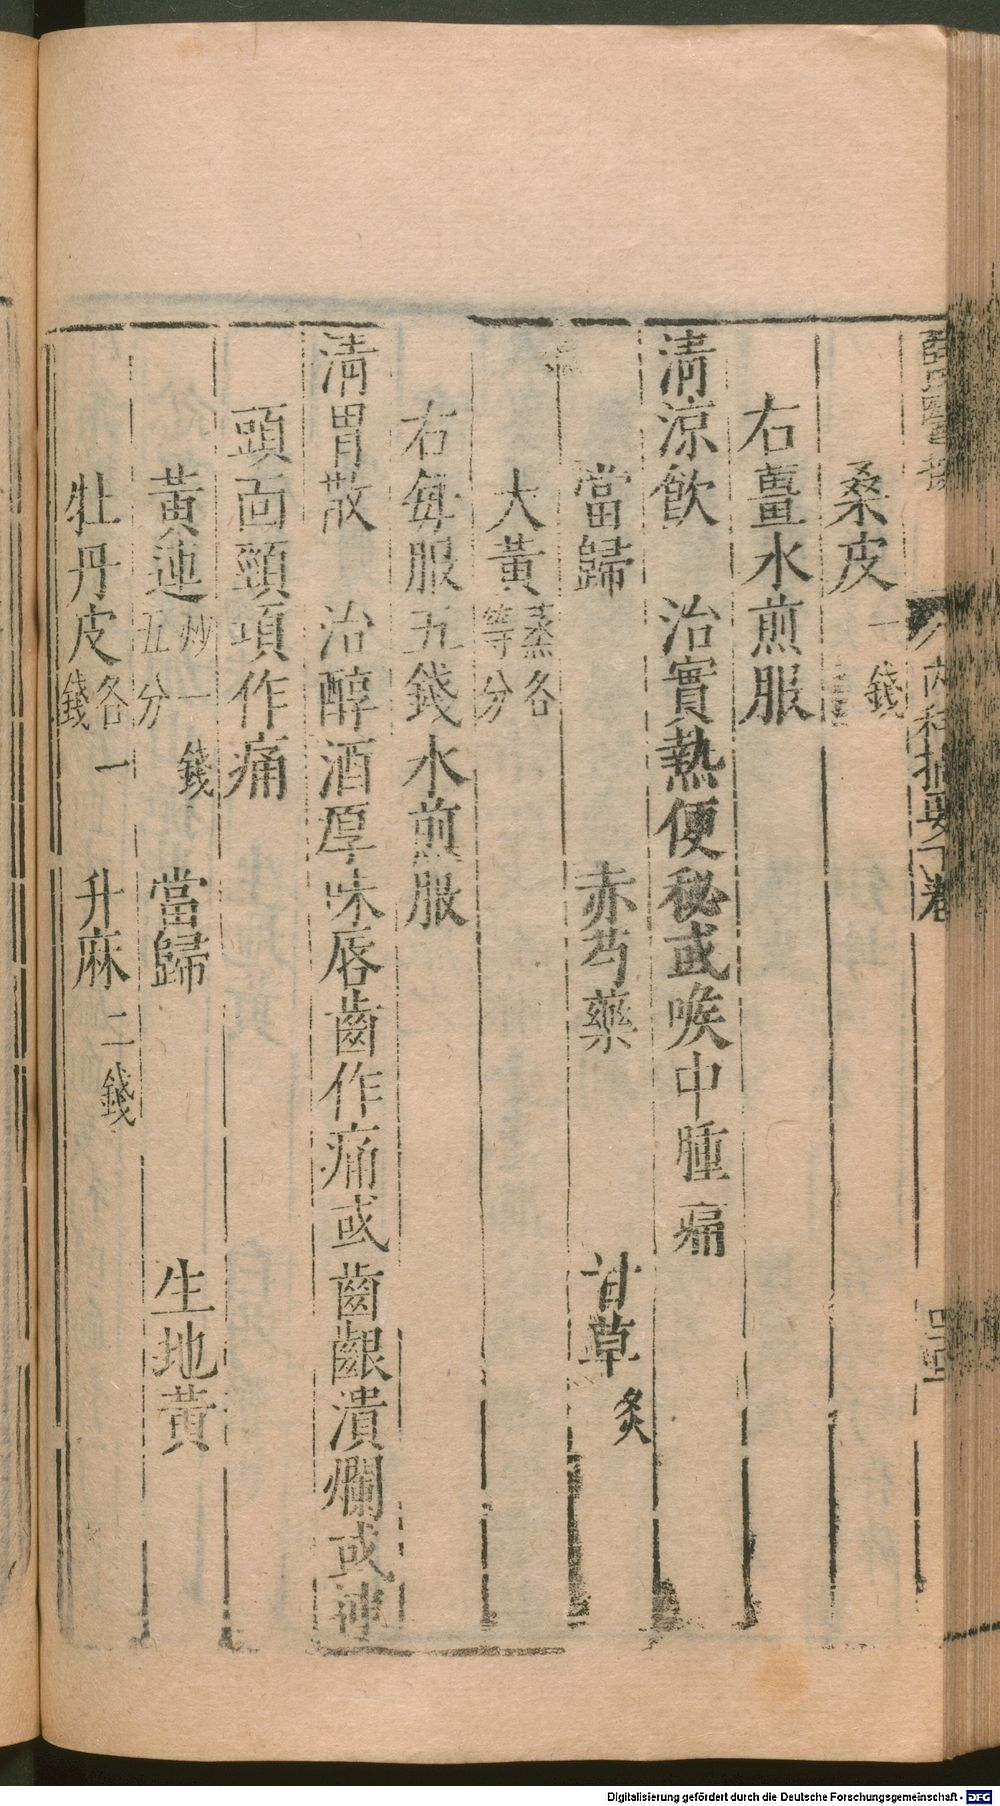 桑皮一錢
右薑水煎服
淸涼飮　治實熱便秘或喉中腫痛
當歸　赤芍藥　甘草炙
大黃蒸各等分
右每服五錢水煎服
淸胃散　治醇酒厚味唇齒作痛或齒齦潰爛或連
頭面頸項作痛
黃連炒一錢五分　當歸　生地黃
牡丹皮各一錢　升麻二錢
內科摘要下卷
Digitalisierung gefördert durch die Deutsche Forschungsgemeinschaft - DFG